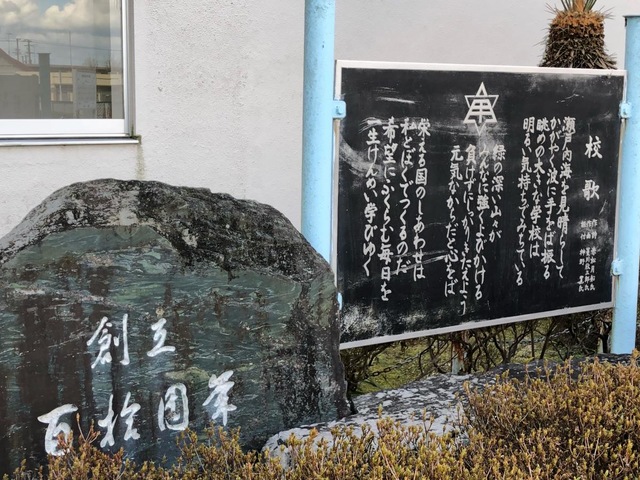 校歌
瀬戸内海を見晴らして
かがやく波に手をば振る
眺めの大きな学校は
明るい気持ちでみちている
緑の深い山々が
みんなに強くよびかける
負けずにしっかりきたえよう
元気なからだと心をば
栄える国のしあわせは
私とぼくでつくるのだ
希望にふくらむ毎日を
一生けんめい学びゆく
創立
百拾周年